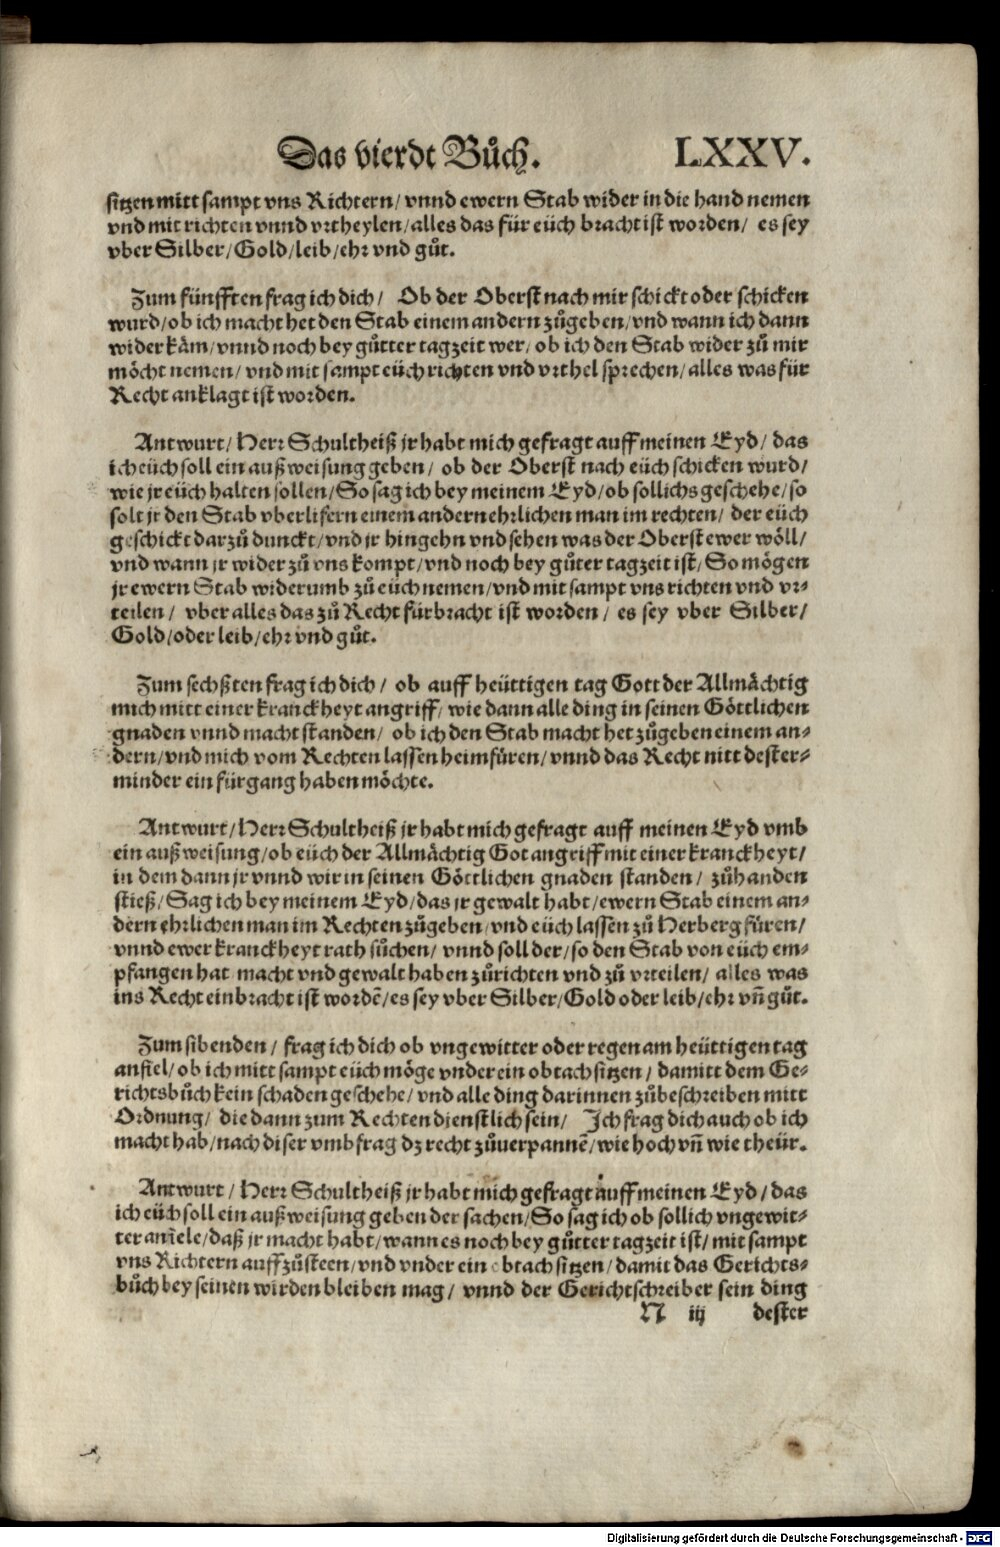 Das vierdt Bůch. LXXV.
sitzen mitt sampt vns Richtern/ vnnd ewern Stab wider in die hand nemen
vnd mit richten vnnd vrtheylen/ alles das für eüch bracht ist worden/ es sey
vber Silber/ Gold/ leib/ ehr vnd gůt.
Zum fünfften frag ich dich/ Ob der Oberst nach mir schickt oder schicken
wurd/ ob ich macht het den Stab einem andern zůgeben/ vnd wann ich dann
wider käm/ vnnd noch bey gůtter tagzeit wer/ ob ich den Stab wider zů mir
möcht nemen/ vnd mit sampt eüch richten vnd vrthel sprechen/ alles was für
Recht anklagt ist worden.
Antwurt/ Herr Schultheiß jr habt mich gefragt auff meinen Eyd/ das
ich eüch soll ein außweisung geben/ ob der Oberst nach eüch schicken wurd/
wie jr eüch halten sollen/ So sag ich bey meinem Eyd/ ob sollichs geschehe/ so
solt jr den Stab vberlifern einem andern ehrlichen man im rechten/ der eüch
geschickt darzů dunckt/ vnd jr hingehn vnd sehen was der Oberst ewer wöll/
vnd wann jr wider zů vns kompt/ vnd noch bey gůter tagzeit ist/ So mögen
jr ewern Stab widerumb zů eüch nemen/ vnd mit sampt vns richten vnd vr⸗
teilen/ vber alles das zů Recht fürbracht ist worden/ es sey vber Silber/
Gold/ oder leib/ ehr vnd gůt.
Zum sechßten frag ich dich/ ob auff heüttigen tag Gott der Allmächtig
mich mitt einer kranckheyt angriff/ wie dann alle ding in seinen Göttlichen
gnaden vnnd macht standen/ ob ich den Stab macht het zůgeben einem an⸗
dern/ vnd mich vom Rechten lassen heimfüren/ vnnd das Recht nitt dester⸗
minder ein fürgang haben möchte.
Antwurt/ Herr Schultheiß jr habt mich gefragt auff meinen Eyd vmb
ein außweisung/ ob eüch der Allmächtig Got angriff mit einer kranckheyt/
in dem dann jr vnnd wir in seinen Göttlichen gnaden standen/ zůhanden
stieß/ Sag ich bey meinem Eyd/ das jr gewalt habt/ ewern Stab einem an⸗
dern ehrlichen man im Rechten zůgeben/ vnd eüch lassen zů Herberg füren/
vnnd ewer kranckheyt rath sůchen/ vnnd soll der/ so den Stab von eüch em⸗
pfangen hat macht vnd gewalt haben zůrichten vnd zů vrteilen/ alles was
ins Recht einbracht ist wordē/ es sey vber Silber/ Gold oder leib/ ehr vñ gůt.
Zum sibenden/ frag ich dich ob vngewitter oder regen am heüttigen tag
anfiel/ ob ich mitt sampt eüch möge vnder ein obtach sitzen/ damitt dem Ge⸗
richtsbůch kein schaden geschehe/ vnd alle ding darinnen zůbeschreiben mitt
Ordnung/ die dann zum Rechten dienstlich sein/ Ich frag dich auch ob ich
macht hab/ nach diser vmbfrag dz recht zůuerpannē/ wie hoch vñ wie theür.
Antwurt/ Herr Schultheiß jr habt mich gefragt auff meinen Eyd/ das
ich eüch soll ein außweisung geben der sachen/ So sag ich ob sollich vngewit⸗
ter anfiele/ daß jr macht habt/ wann es noch bey gůtter tagzeit ist/ mit sampt
vns Richtern auffzůsteen/ vnd vnder ein obtach sitzen/ damit das Gerichts⸗
bůch bey seinen wirden bleiben mag/ vnnd der Gerichtschreiber sein ding
N iij dester
Digitalisierung gefördert durch die Deutsche Forschungsgemeinschaft - DFG